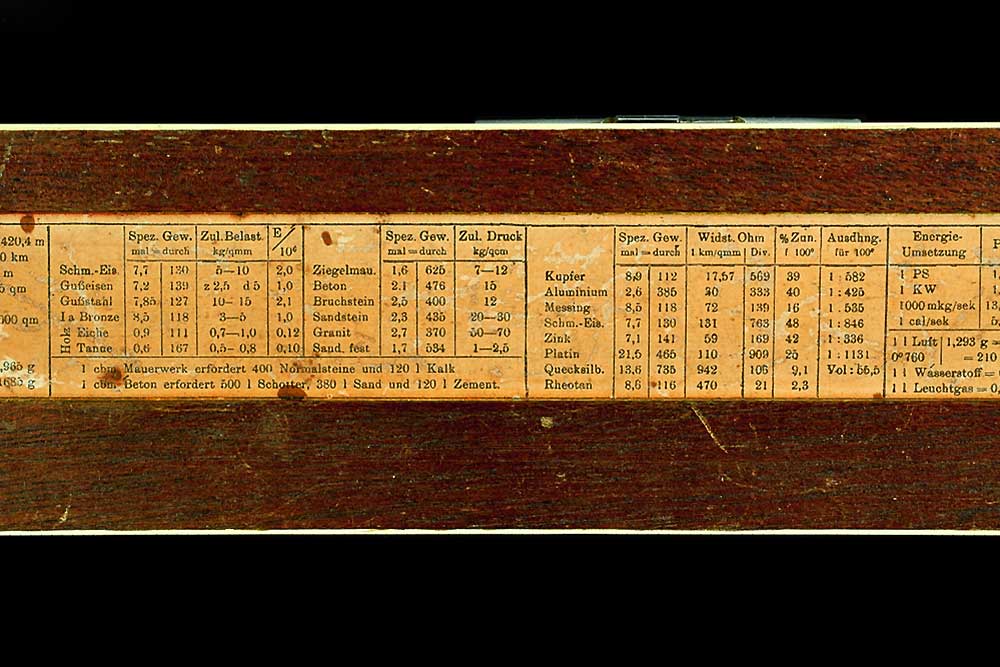 420,4 m
0 km
m
5 qm
000 qm
,985 g
1685 g
Spez. Gew. Zul. Belast. E/10⁶
mal = durch kg/qmm
Schm.-Eis. 7,7 130 5—10 2,0
Gußeisen 7,2 139 z 2,5 d 5 1,0
Gußstahl 7,85 127 10—15 2,1
I a Bronze 8,5 118 3—5 1,0
Holz
Eiche 0,9 111 0,7—1,0 0.12
Tanne 0,6 167 0,5—0,8 0,10
Spez. Gew. Zul. Druck
mal = durch kg/qcm
Ziegelmau. 1,6 625 7—12
Beton 2.1 476 15
Bruchstein 2,5 400 12
Sandstein 2,3 435 20—30
Granit 2,7 370 50—70
Sand. fest 1,7 534 1—2,5
1 cbm Mauerwerk erfordert 400 Normalsteine und 120 l Kalk
1 cbm Beton erfordert 500 l Schotter, 380 l Sand und 120 l Zement.
Spez. Gew. Widst. Ohm %Zun. Ausdhng.
mal = durch 1.km/qmm Div. f 100° für 100°
Kupfer 8,9 112 17,57 569 39 1 : 582
Aluminium 2,6 385 30 333 40 1 : 425
Messing 8,5 118 72 139 16 1 : 535
Schm.-Eis. 7,7 130 131 763 48 1 : 846
Zink 7,1 141 59 169 42 1 : 336
Platin 21,5 465 110 909 25 1 : 1131
Quecksilb. 13,6 735 942 106 9,1 Vol : 55,5
Rheotan 8,6 116 470 21 2,3
Energie-
Umsetzung
1 PS
1 KW
1000 mkg/sek
1 cal/sek
1 l Luft 1,293 g =
0° 760 = 210
1 l Wasserstoff =
1 l Leuchtgas = 0,